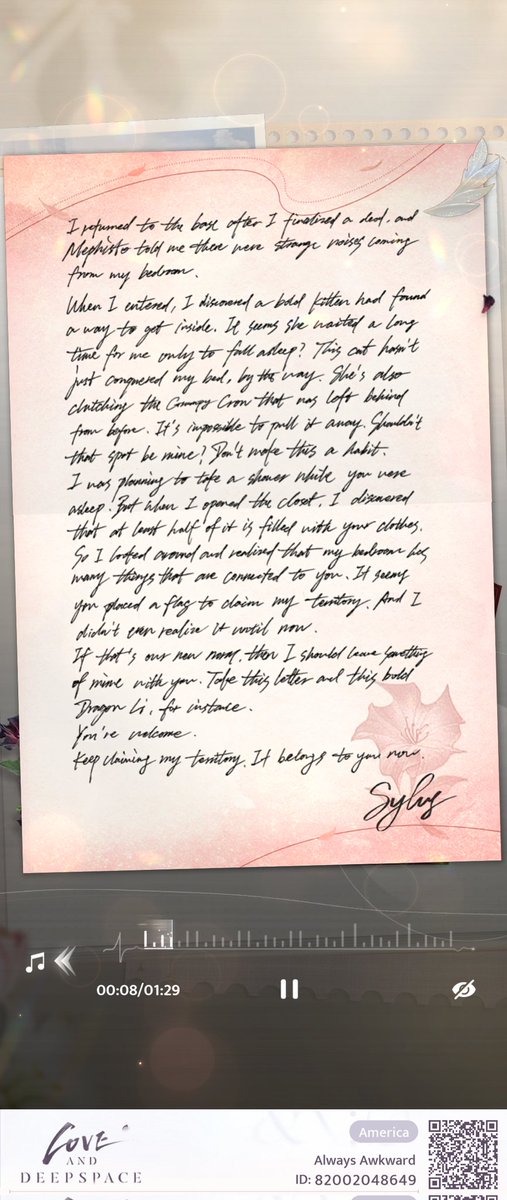 I returned to the base after I finalized a deal, and
Mephisto told me there were strange noises coming
from my bedroom.
When I entered, I discovered a bold kitten had found
a way to get inside. It seems she waited a long
time for me only to fall asleep? This cat hasn't
just conquered my bed, by the way. She's also
clutching the Grumpy Crow that was left behind
from before. It's impossible to pull it away. Shouldn't
that spot be mine? Don't make this a habit.
I was planning to take a shower while you were
asleep. But when I opened the closet, I discovered
that at least half of it is filled with your clothes.
So I looked around and realized that my bedroom has
many things that are connected to you. It seems
you placed a flag to claim my territory. And I
didn't even realize it until now.
If that's our new norm, then I should leave something
of mine with you. Take this letter and this bold
Dragon Li, for instance.
You're welcome.
Keep claiming my territory. It belongs to you now.
Sylus
00:08/01:29
LOVE
AND
DEEPSPACE
America
Always Awkward
ID: 82002048649